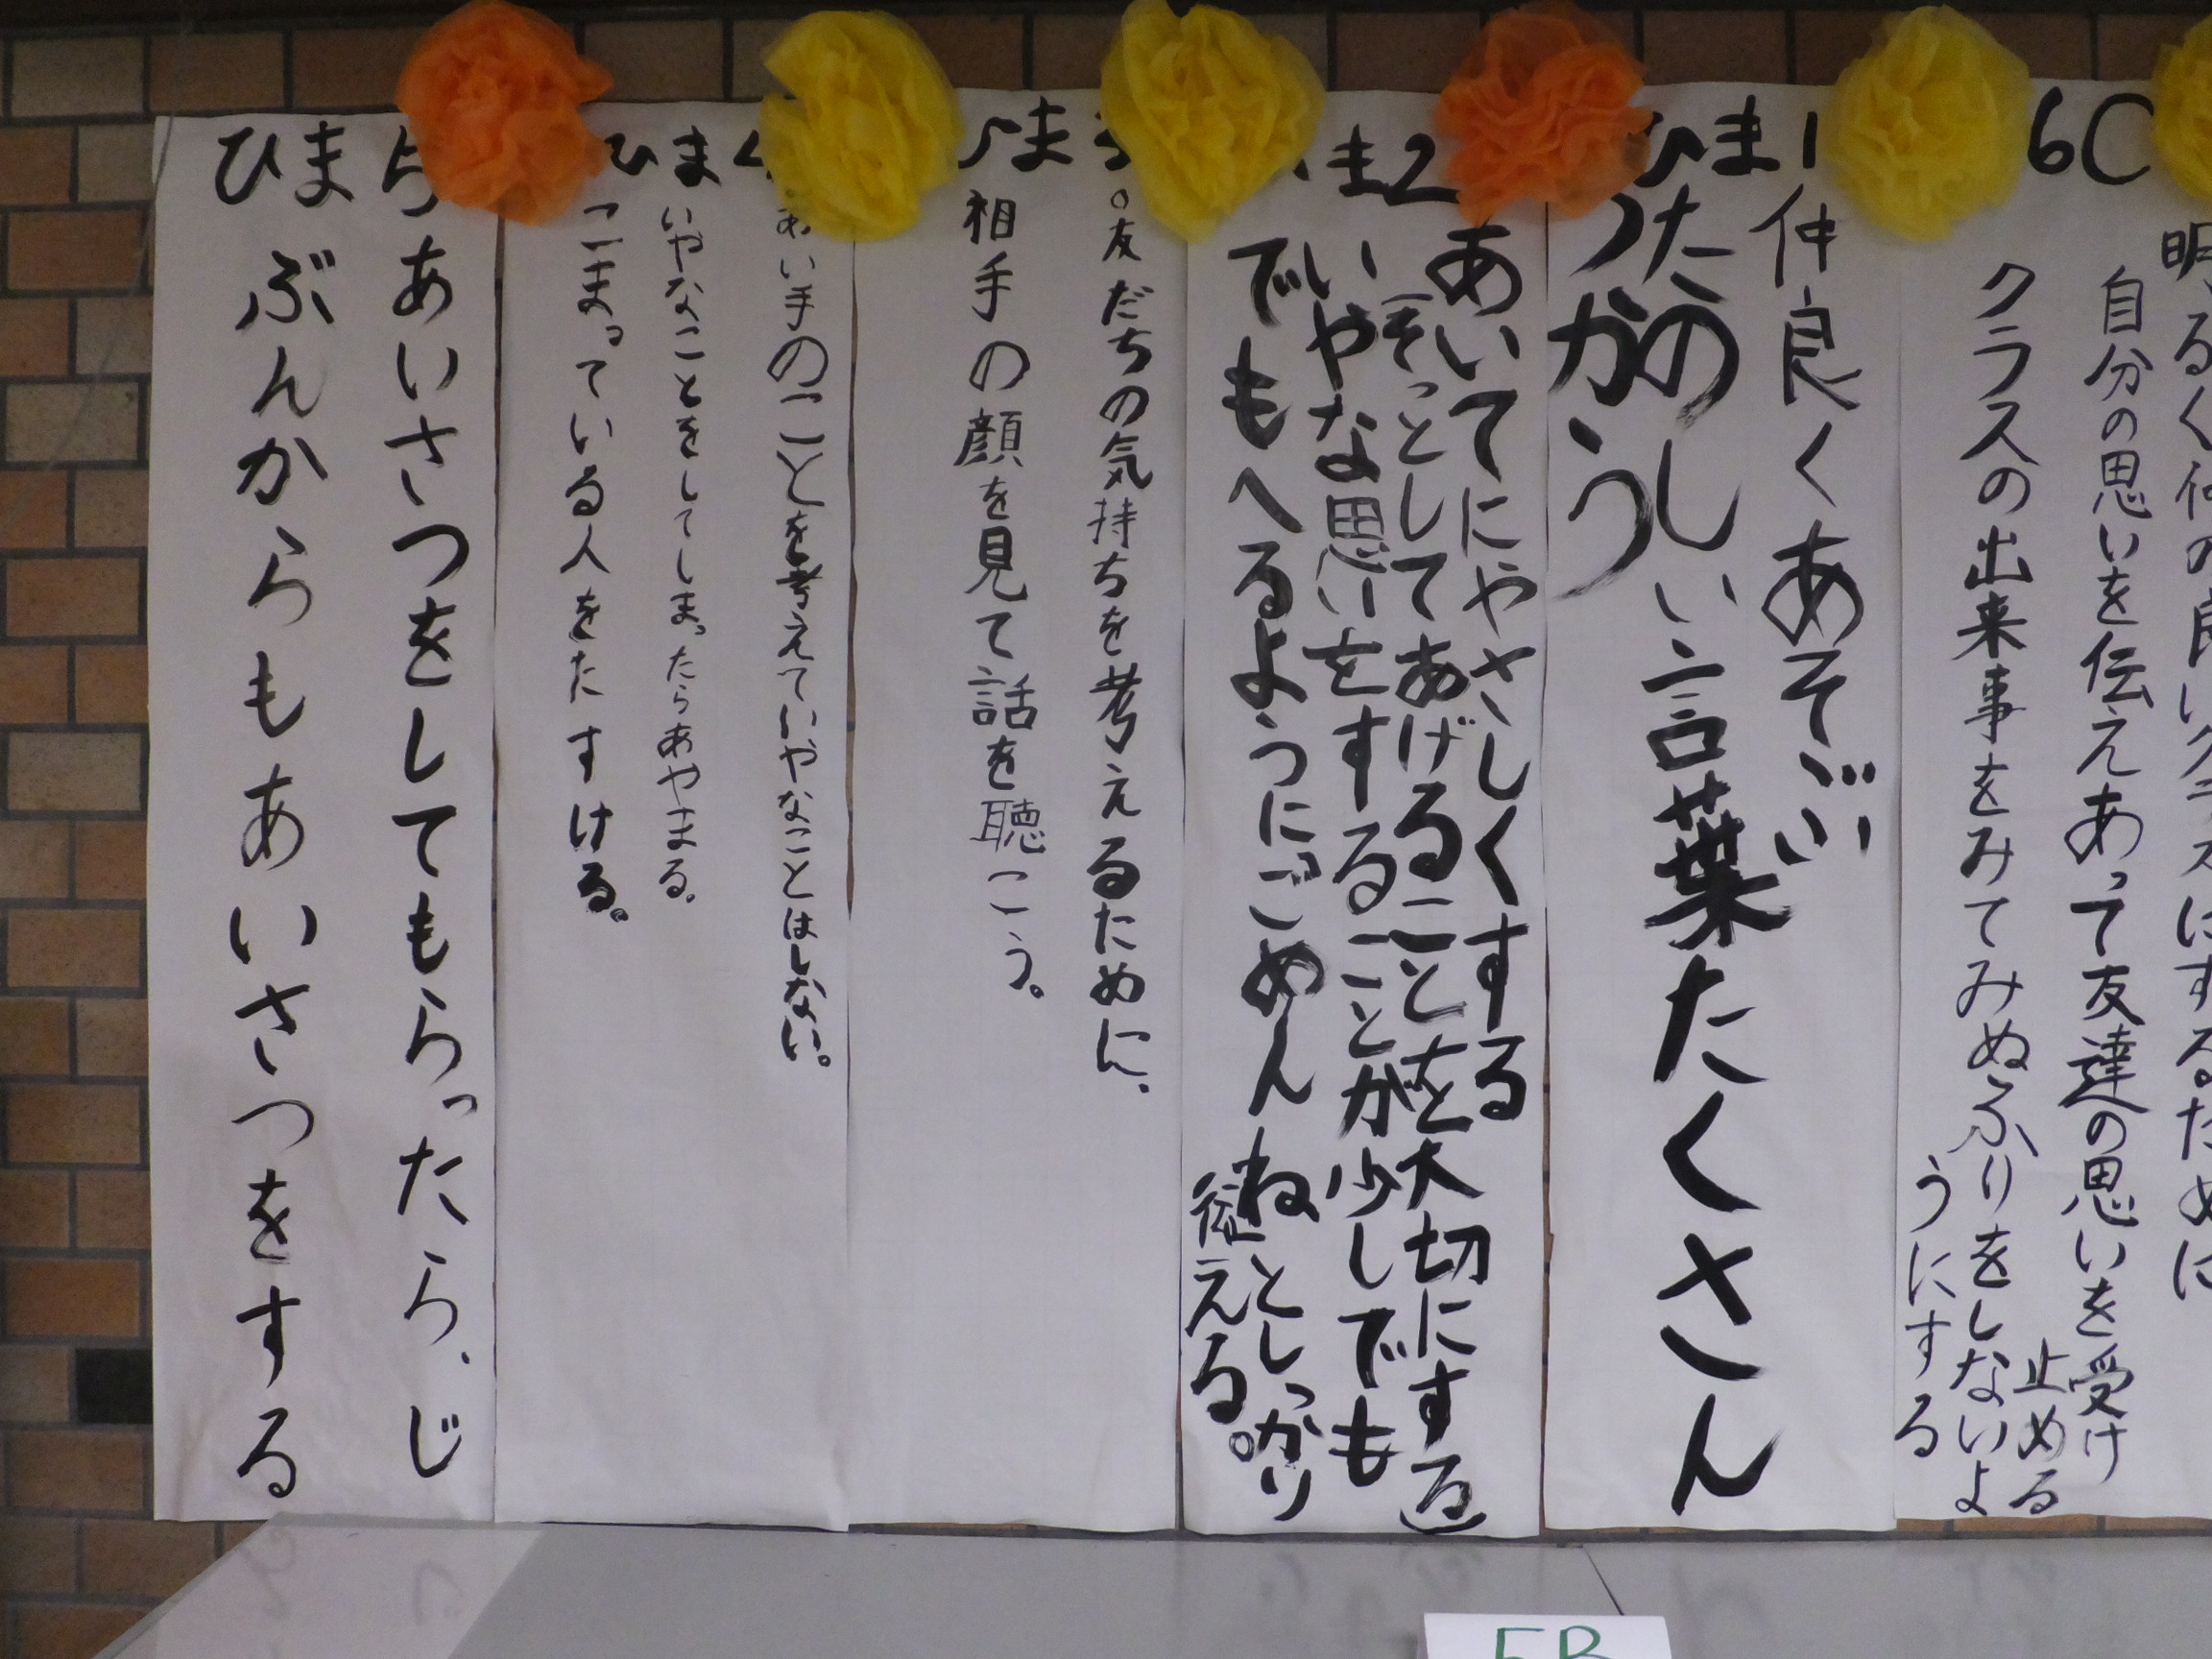 明るく仲の良いクラスにする。ために
自分の思いを伝えあって友達の思いを受け
止める
クラスの出来事をみてみぬふりをしないよ
うにする
6C
ひま1
仲良くあそぶ
たのしい言葉たくさん
つかう
ま2
あいてにやさしくする
(そっとしてあげることを大切にする)
いやな思いをすることが少しでも
でもへるようにごめんねとしっかり
従える。
ひま3
。友だちの気持ちを考えるために、
相手の顔を見て話を聴こう。
ひま4
あい手のことを考えていやなことはしない。
いやなことをしてしまったらあやまる。
こまっている人をたすける。
ひま5
あいさつをしてもらったら、じ
ぶんからもあいさつをする
5B